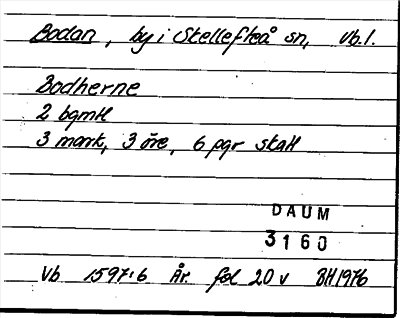 Bodan, by i Skellefteå sn, Vb.l.
Bodherne
2 bgmtl
3 mark, 3 öre, 6 pgr skatt
DAUM
3160
Vb 1597:6 År. fol 20 v BH 1976